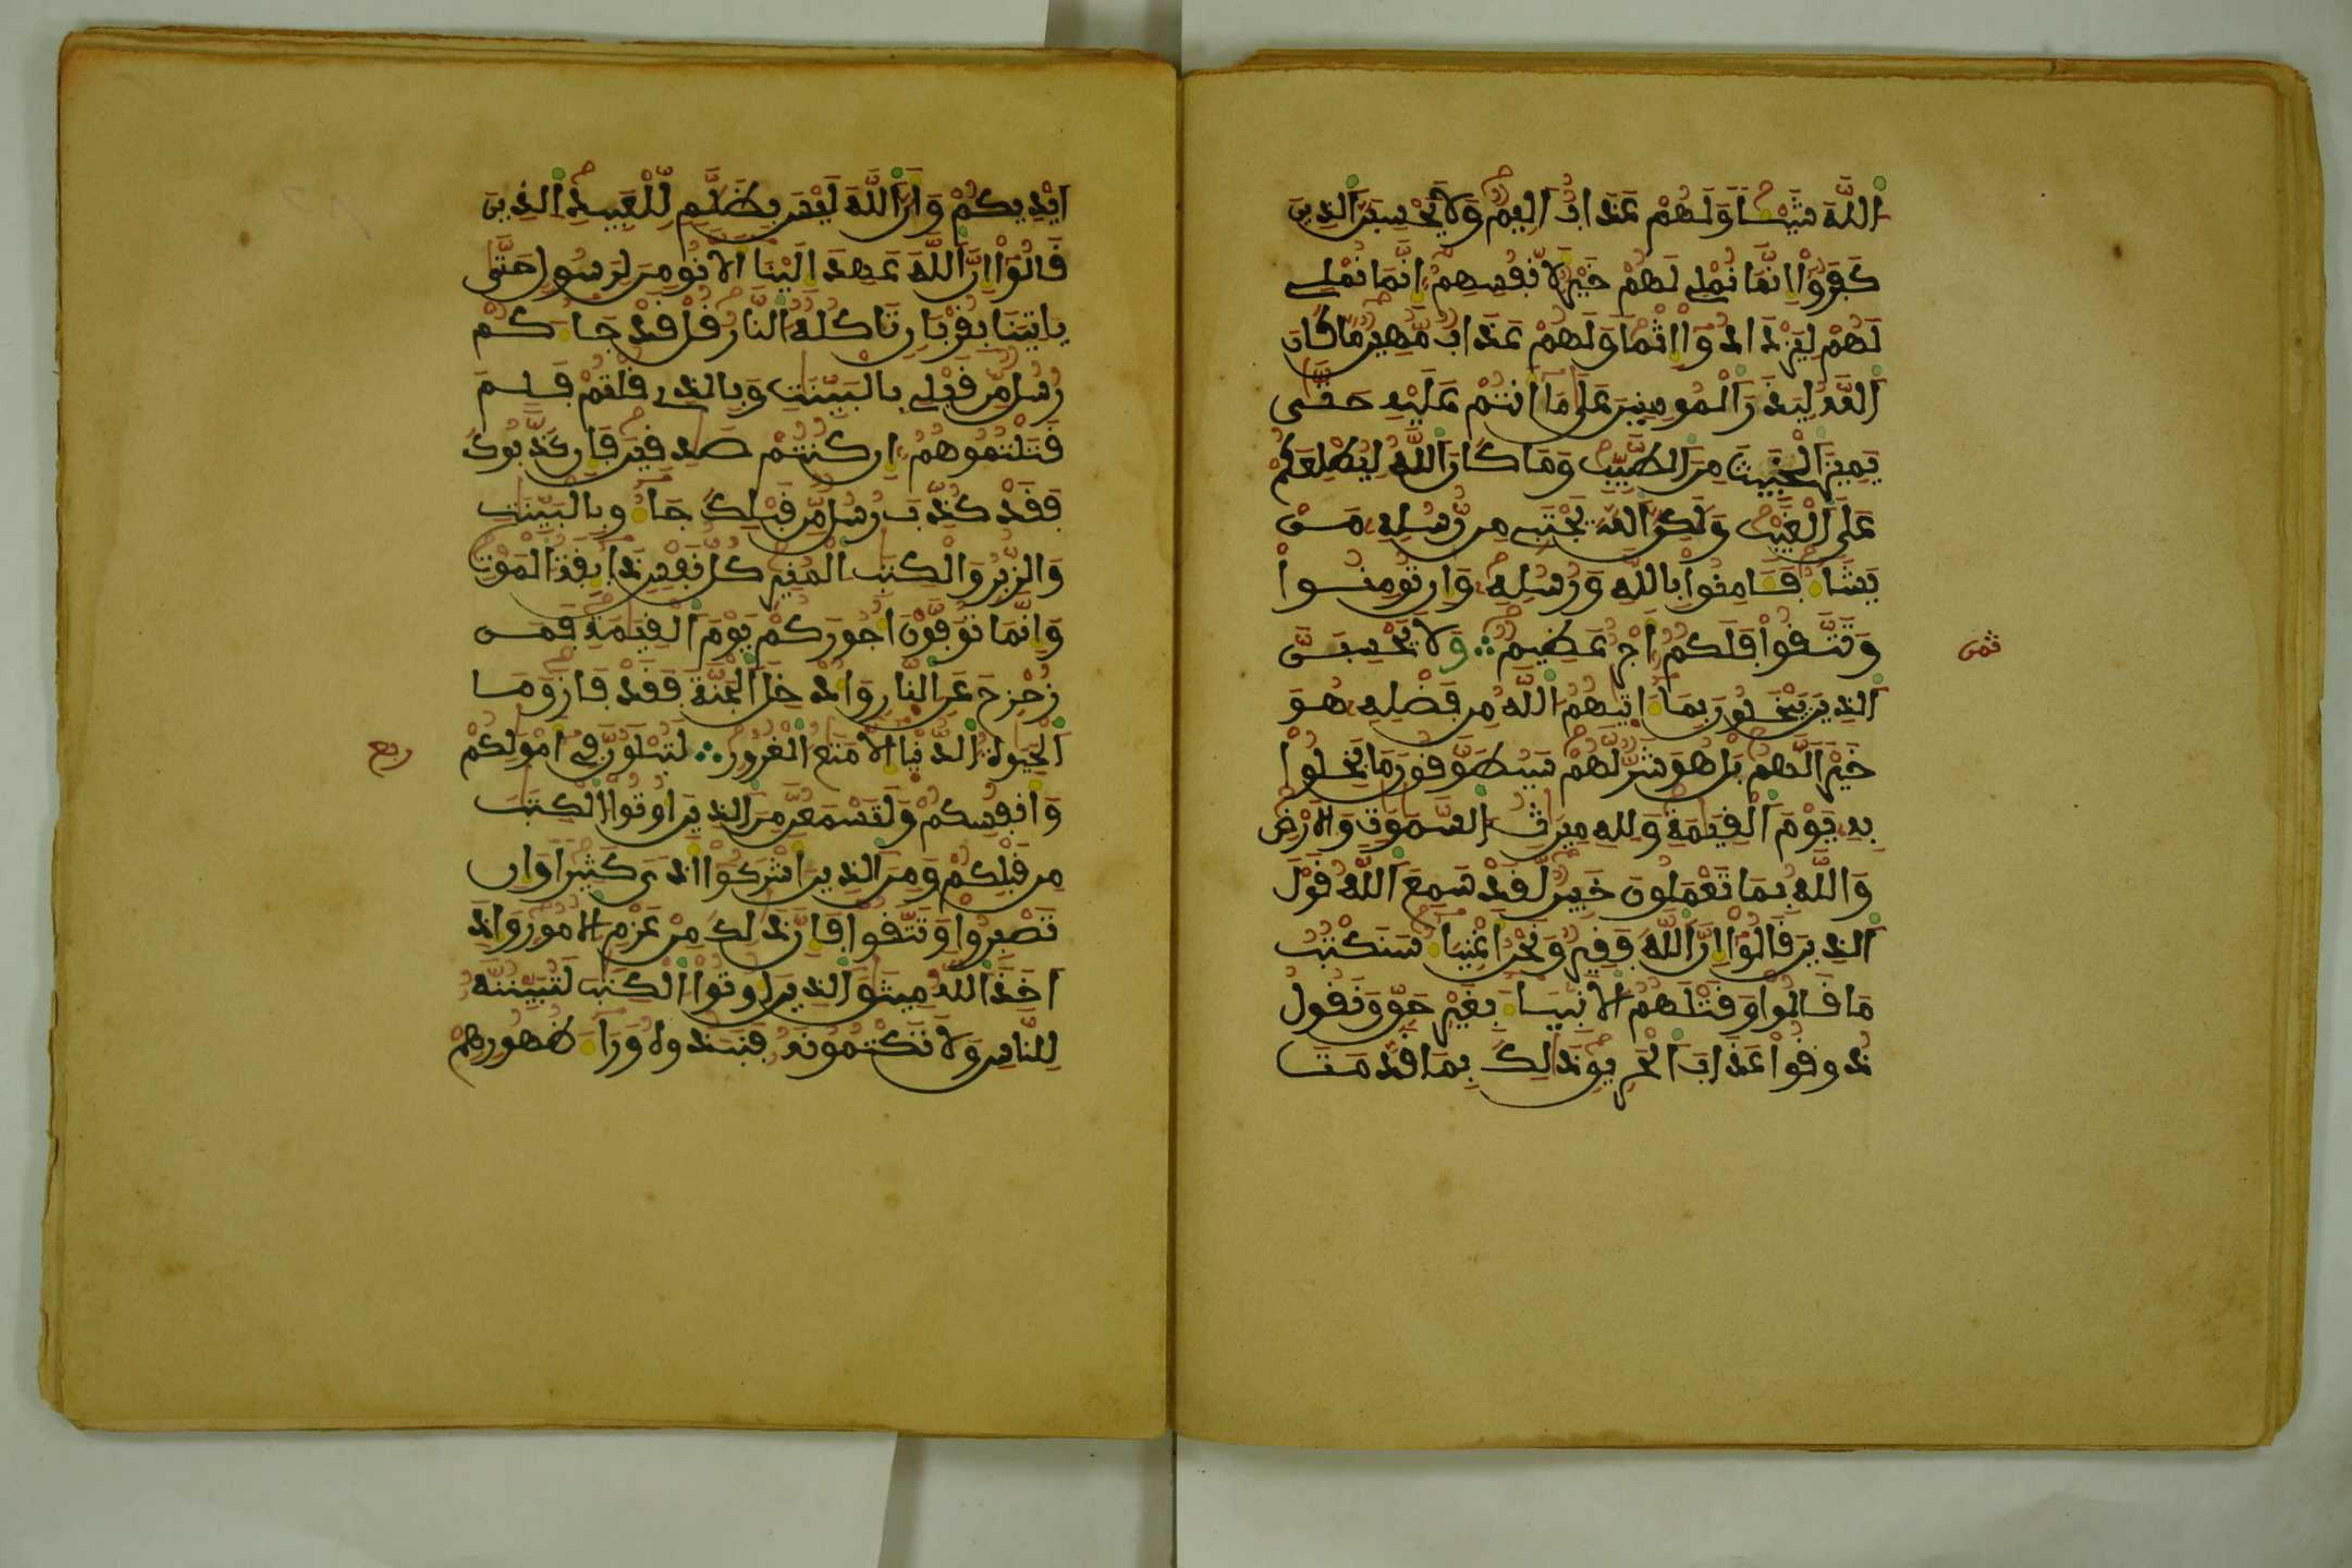 اللَّهَ شَيْـًٔا وَلَهُمْ عَذَابٌ اَلِيمٌ وَلَا يَحْسِبَنَّ الذِينَ
كَفَرُوٓاْ إِنَّمَا نُمْلِے لَهُمْ خَيْرٌ لِّأَنفُسِهِمُۥٓ إِنَّمَا نُمْلِے
لَهُمْ لِيَزْدَادُوٓاْ إِثْمًا وَلَهُمْ عَذَابٌ مُّهِينٌ مَّا كَانَ
اَللَّهُ لِيَذَرَ اَلْمُومِنِينَ عَلَىٰ مَآ أَنتُمْ عَلَيْهِ حَتَّىٰ
يَمِيزَ اَلْخَبِيثَ مِنَ اَلطَّيِّبِ وَمَا كَانَ اَللَّهُ لِيُطْلِعَكُمْ
عَلَى اَلْغَيْبِ وَلَٰكِنَّ اَللَّهَ يَجْتَبِے مِن رُّسُلِهِۦ مَنْ
يَّشَآءُ فَـَٔامِنُواْ بِاللَّهِ وَرُسُلِهِۦ وَإِن تُومِنُواْ
وَتَتَّقُواْ فَلَكُمُۥٓ أَجْرٌ عَظِيمٌ ∴ وَلَا يَحْسِبَنَّ
ثمن
اَلذِينَ يَبْخَلُونَ بِمَآ ءَاتَىٰهُمُ اللَّهُ مِن فَضْلِهِۦ هُوَ
خَيْرًا لَّهُم بَلْ هُوَ شَرٌّ لَّهُمْ سَيُطَوَّقُونَ مَا بَخِلُواْ
بِهِۦ يَوْمَ اَلْقِيَٰمَةِ وَلِلهِ مِيرَٰثُ السَّمَٰوَٰتِ وَالْأَرْضِ
وَاللَّهُ بِمَا تَعْمَلُونَ خَبِيرٌ لَّقَدْ سَمِعَ اَللَّهُ قَوْلَ
اَلذِينَ قَالُوٓاْ إِنَّ اَللَّهَ فَقِيرٌ وَنَحْنُ أَغْنِيَآءُ سَنَكْتُبُ
مَا قَالُواْ وَقَتْلَهُمُ الْأَنۢبِيَآءَ بِغَيْرِ حَقٍّ وَنَقُولُ
ذُوقُواْ عَذَابَ اَلْحَرِيقِ ذَٰلِكَ بِمَا قَدَّمَتَ
اَيْدِيكُمْ وَأَنَّ اَللَّهَ لَيْسَ بِظَلَّٰمٍ لِّلْعَبِيدِ اِلذِينَ
قَالُوٓاْ إِنَّ اَللَّهَ عَهِدَ إِلَيْنَآ أَلَّا نُومِنَ لِرَسُولٍ حَتَّىٰ
يَاتِيَنَا بِقُرْبَانٍ تَاكُلُهُ النَّارُ قُلْ قَدْ جَآءَكُمْ
رُسُلٌ مِّن قَبْلِے بِالْبَيِّنَٰتِ وَبِالذِے قُلْتُمْ فَلِمَ
قَتَلْتُمُوهُمُۥٓ إِن كُنتُمْ صَٰدِقِينَ فَإِن كَذَّبُوكَ
فَقَدْ كُذِّبَ رُسُلٌ مِّن قَبْلِكَ جَآءُو بِالْبَيِّنَٰتِ
وَالزُّبُرِ وَالْكِتَٰبِ الْمُنِيرِ كُلُّ نَفْسٍ ذَآئِقَةُ الْمَوْتِ
وَإِنَّمَا تُوَفَّوْنَ أُجُورَكُمْ يَوْمَ اَلْقِيَٰمَةِ فَمَن
زُحْزِحَ عَنِ النَّارِ وَأُدْخِلَ اَلْجَنَّةَ فَقَدْ فَازَ وَمَا
اَلْحَيَوٰةُ الدُّنْيَآ إِلَّا مَتَٰعُ الْغُرُورِ ∴ لَتُبْلَوُنَّ فِےٓ أَمْوَٰلِكُمْ
ربع
وَأَنفُسِكُمْ وَلَتَسْمَعُنَّ مِنَ اَلذِينَ أُوتُواْ الْكِتَٰبَ
مِن قَبْلِكُمْ وَمِنَ اَلذِينَ أَشْرَكُوٓاْ أَذًى كَثِيرًا وَإِن
تَصْبِرُواْ وَتَتَّقُواْ فَإِنَّ ذَٰلِكَ مِنْ عَزْمِ الْأُمُورِ وَإِذَ
اَخَذَ اَللَّهُ مِيثَٰقَ اَلذِينَ أُوتُواْ الْكِتَٰبَ لَتُبَيِّنُنَّهُۥ
لِلنَّاسِ وَلَا تَكْتُمُونَهُۥ فَنَبَذُوهُ وَرَآءَ ظُهُورِهِمْ